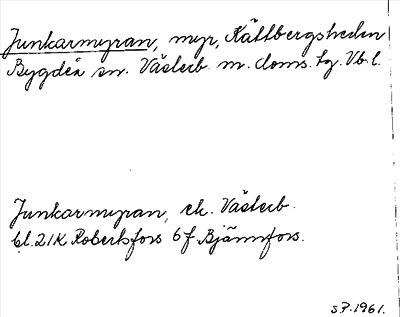 Junkarmyran, myr, Kältbergsheden
Bygdeå sn. Västerb. m. doms. tg. Vb. l.
Junkarmyran, ek. Västerb.
bl. 21K Robertsfors 6f Bjännfors.
S.P. 1961.